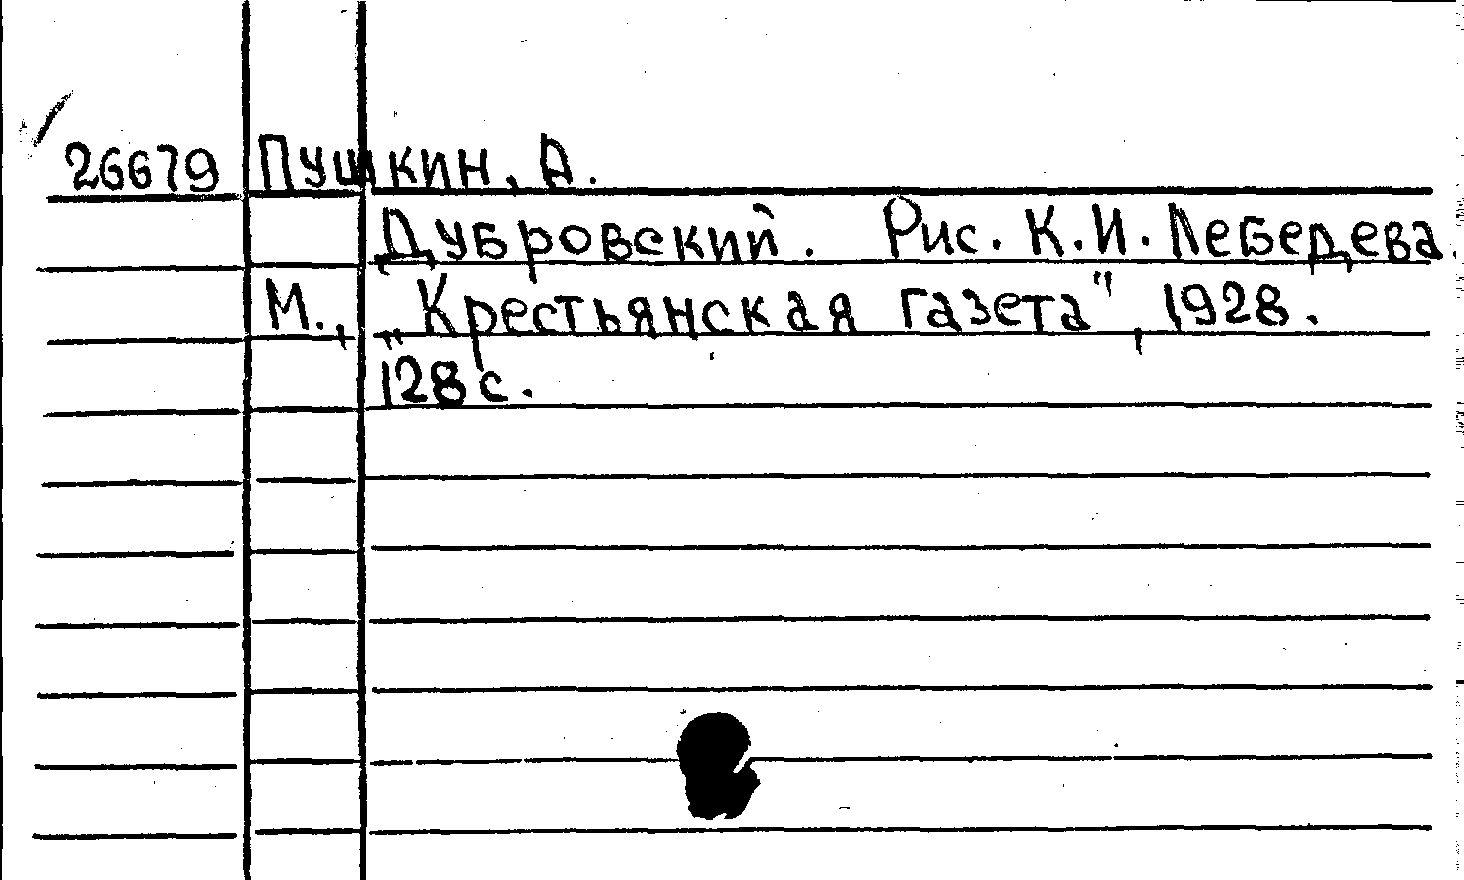 26679 Пушкин, А.
Дубровский. Рис. К.И. Лебедева.
М., „Крестьянская газета", 1928.
128 с.